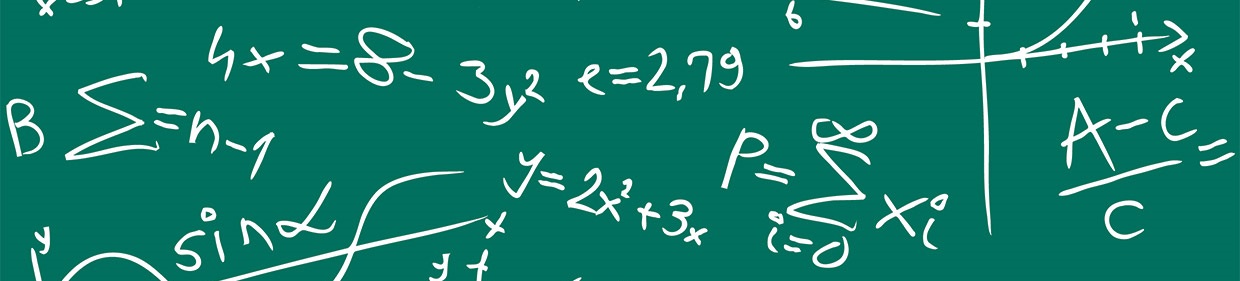 4x=8-3y² e=2,79
B Σ=n-1
y=2x²+3x
P=∞Σi=0 xi
A-C/C=
sinα
x
y
6
x
y